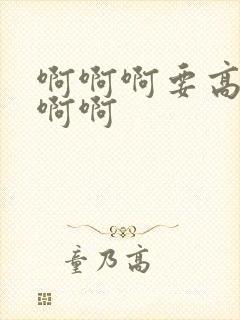 啊啊啊要高
啊啊
童乃高